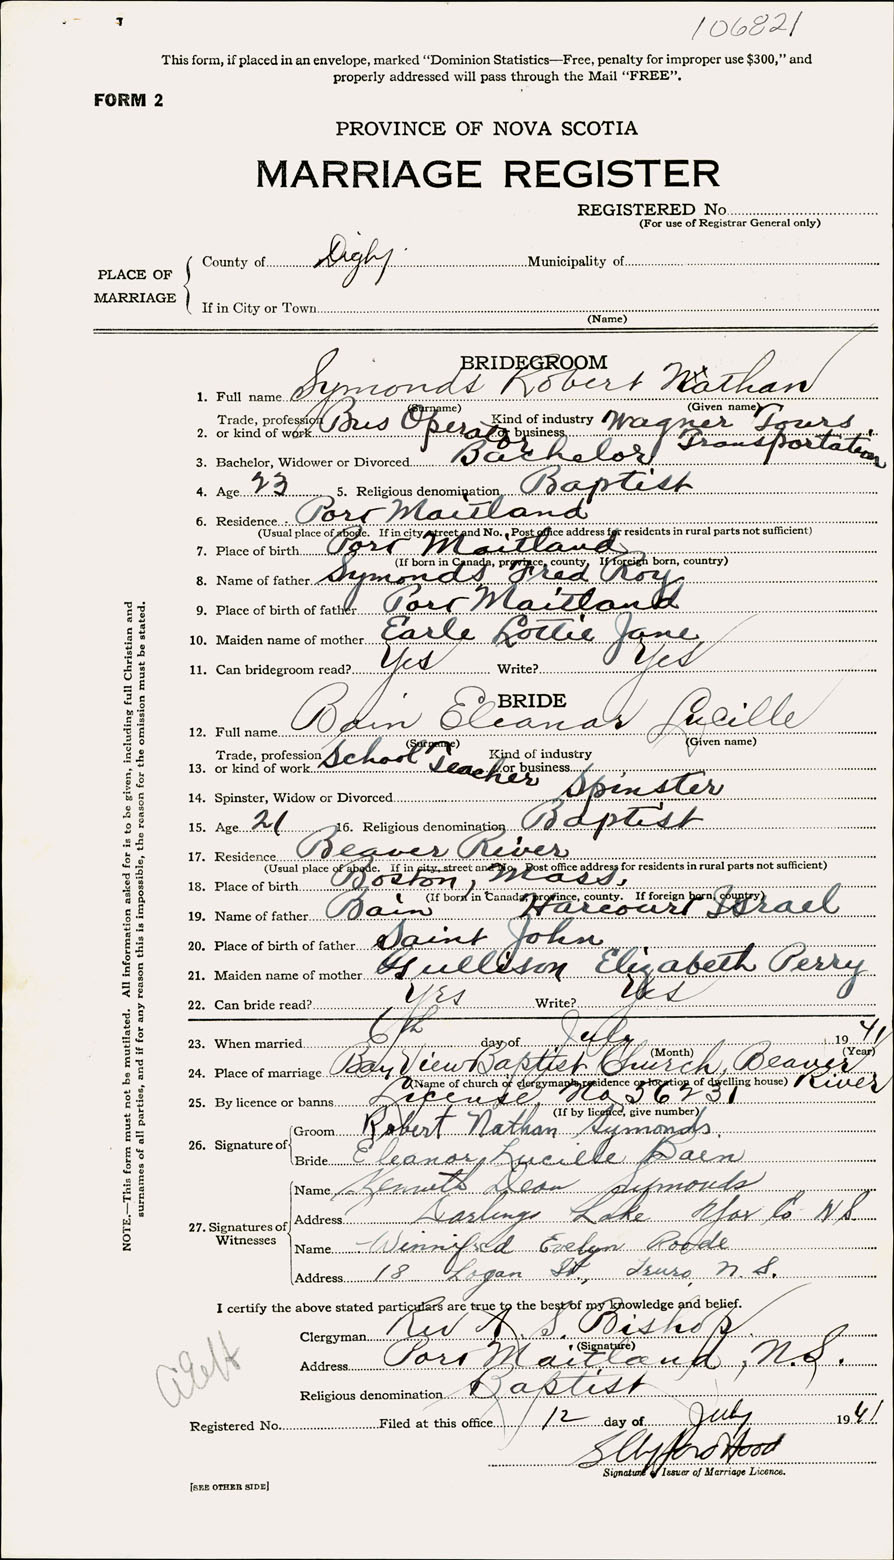 106821
This form, if placed in an envelope, marked "Dominion Statistics—Free, penalty for improper use $300," and
properly addressed will pass through the Mail "FREE".
FORM 2
PROVINCE OF NOVA SCOTIA
MARRIAGE REGISTER
REGISTERED No.
(For use of Registrar General only)
PLACE OF MARRIAGE
County of Digby Municipality of
If in City or Town
(Name)
BRIDEGROOM
1. Full name Symonds Robert Nathan
(Surname) (Given name)
2. Trade, profession or kind of work Bus Operator Kind of industry or business Wagner Tours Transportation
3. Bachelor, Widower or Divorced Bachelor
4. Age 23 5. Religious denomination Baptist
6. Residence Port Maitland
(Usual place of abode. If in city, street and No. Post office address for residents in rural parts not sufficient)
7. Place of birth Port Maitland
(If born in Canada, province, county. If foreign born, country)
8. Name of father Symonds Fred Roy
9. Place of birth of father Port Maitland
10. Maiden name of mother Earle Lottie Jane
11. Can bridegroom read? Yes Write? Yes
BRIDE
12. Full name Bain Eleanor Lucille
(Surname) (Given name)
13. Trade, profession or kind of work School Teacher Kind of industry or business
14. Spinster, Widow or Divorced Spinster
15. Age 21 16. Religious denomination Baptist
17. Residence Beaver River
(Usual place of abode. If in city, street and No. Post office address for residents in rural parts not sufficient)
18. Place of birth Boston, Mass.
(If born in Canada, province, county. If foreign born, country)
19. Name of father Bain Harcourt Israel
20. Place of birth of father Saint John
21. Maiden name of mother Gullison Elizabeth Perry
22. Can bride read? Yes Write? Yes
23. When married 6th day of July 1941
(Month) (Year)
24. Place of marriage Bay View Baptist Church, Beaver River
(Name of church or clergyman's residence or location of dwelling house)
25. By licence or banns License No 36231
(If by licence, give number)
26. Signature of
Groom Robert Nathan Symonds.
Bride Eleanor Lucille Bain
27. Signatures of Witnesses
Name Kenneth Dean Symonds
Address Darlings Lake Yar Co N S.
Name Winnifred Evelyn Poode
Address 18 Logan St., Truro, N. S.
I certify the above stated particulars are true to the best of my knowledge and belief.
Clergyman Rev A. S. Bishop
(Signature)
Address Port Maitland, N.S.
Religious denomination Baptist
Registered No. Filed at this office 12 day of July 1941
Signature of Issuer of Marriage Licence.
[SEE OTHER SIDE]
NOTE.—This form must not be mutilated. All information asked for is to be given, including full Christian and
surnames of all parties, and if for any reason this is impossible, the reason for the omission must be stated.